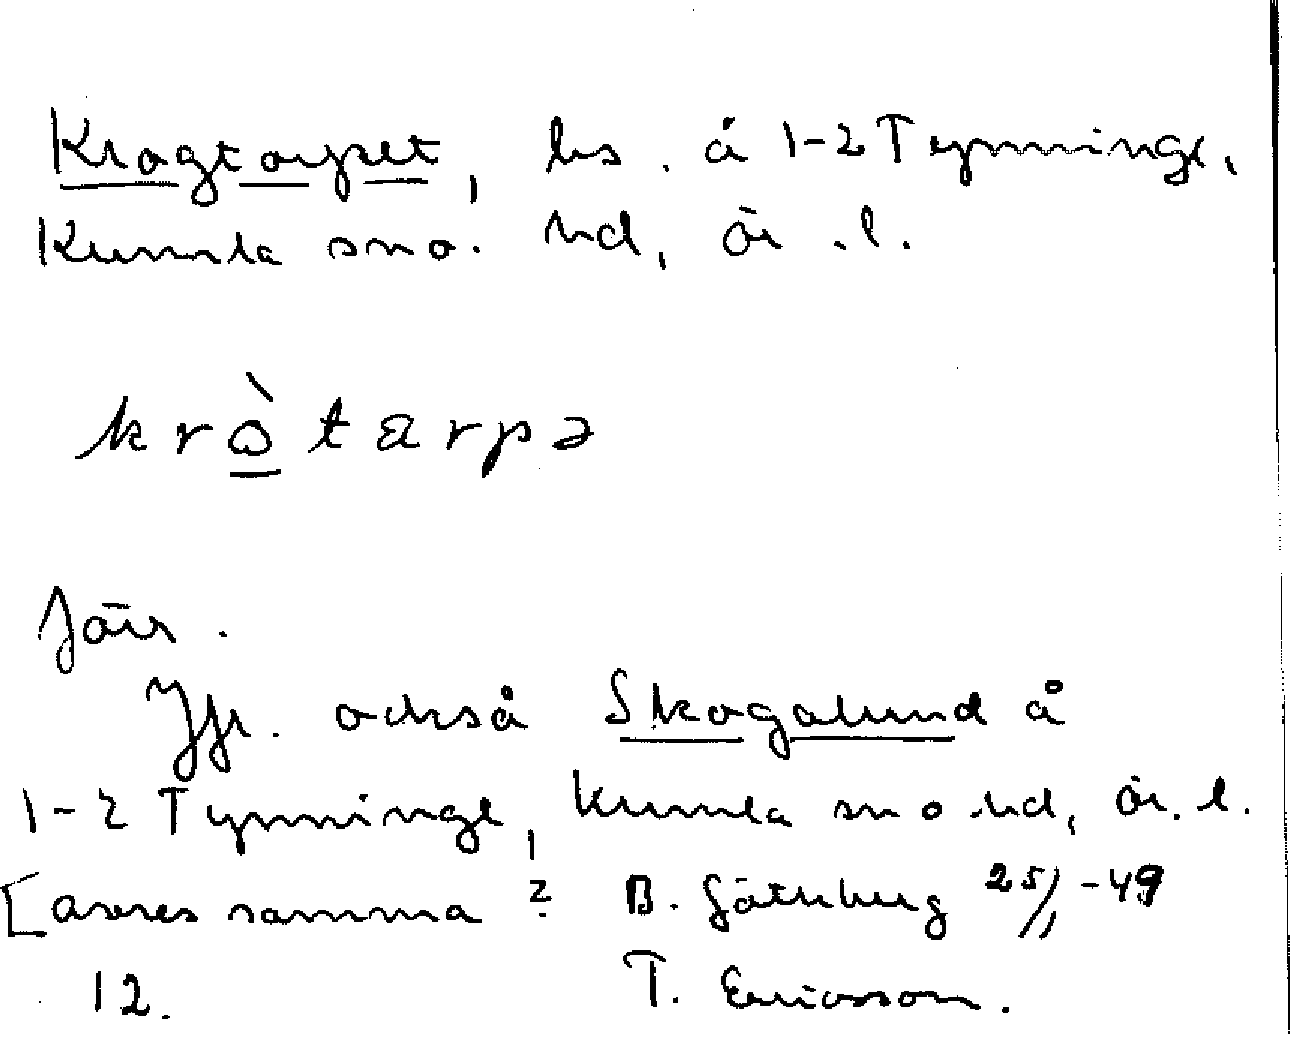 Krogtorpet, ls. å 1-2 Tynninge,
Kumla sn o. hd, ör.l.
krò̲tarpə
Jär.
Jfr. också Skogalund å
1-2 Tynninge, Kumla sn o hd, ör.l.
[avses samma? B. Götherberg 25/1 -49
12. T. Ericsson.